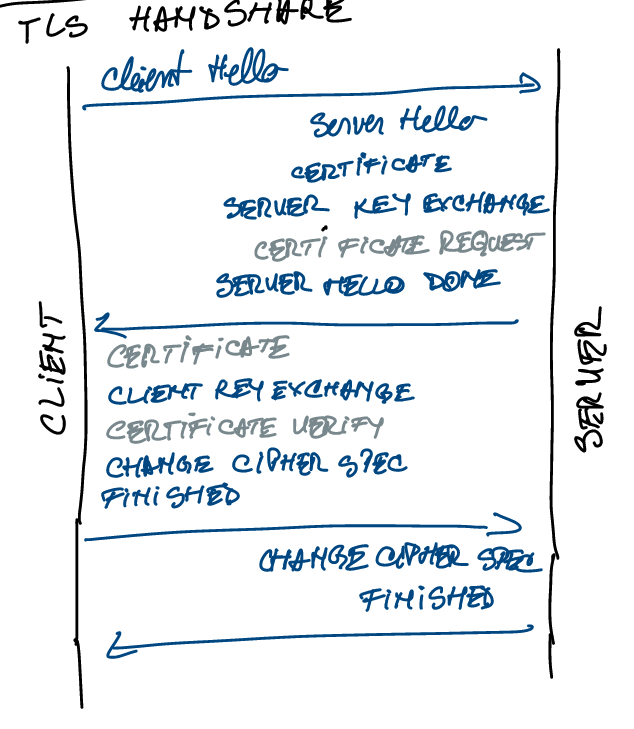 TLS HANDSHAKE
Client Hello
Server Hello
CERTIFICATE
SERVER KEY EXCHANGE
CERTIFICATE REQUEST
SERVER HELLO DONE
CLIENT
SERVER
CERTIFICATE
CLIENT KEY EXCHANGE
CERTIFICATE VERIFY
CHANGE CIPHER SPEC
FINISHED
CHANGE CIPHER SPEC
FINISHED